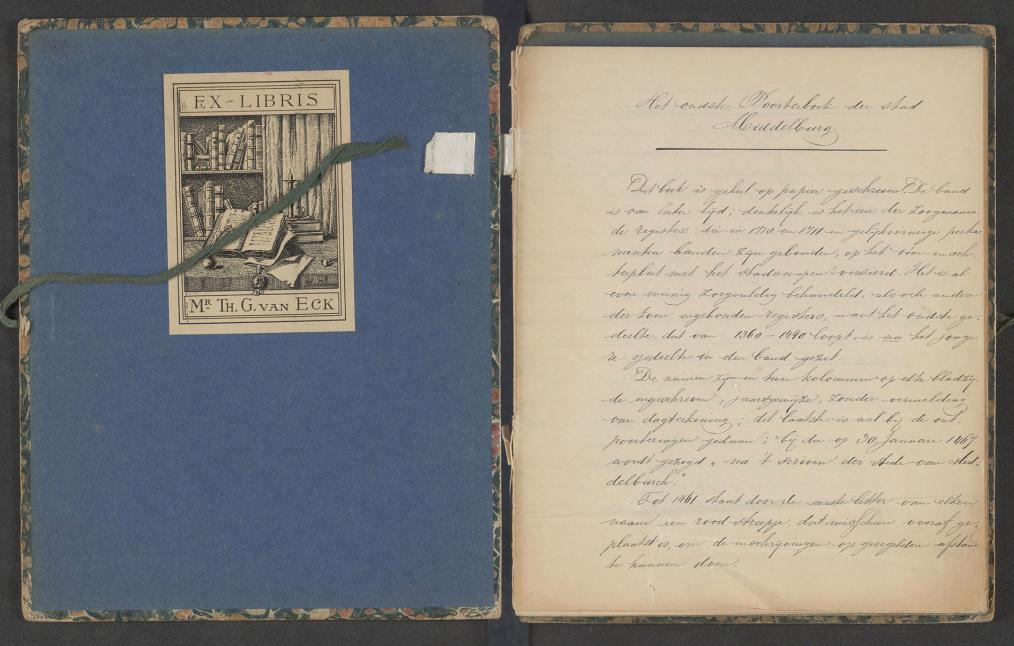 EX-LIBRIS
MR TH. G. VAN ECK
Het oudste Poorterboek der stad
Middelburg.
Dit boek is geheel op papier geschreven. De band
is van later tijd; denkelijk is het een der zoogenaam-
de registers, die in 1710 en 1711 in gelijkvormige perka
menten banden zijn gebonden, op het voor- en ach-
terplat met het stadswapen versierd. Het is al
even weinig zorgvuldig behandeld als ook ander
der toen ingebonden registers, want het oudste ge-
deelte, dat van 1360-1440 loopt, is na het jonge
re gedeelte in den band gezet.
De namen zijn in twee kolommen op elke bladzij-
de ingeschreven, jaarsgewijze, zonder vermelding
van dagteekening; dit laatste is wel bij de ont-
poorteringen gedaan; bij die op 30 Januari 1467
wordt gezegd „na 't scriven der stede van Mid-
delburch."
Tot 1461 staat door de eerste letter van elken
naam een rood streepje, dat misschien vooraf ge-
plaatst is, om de inschrijvingen op geregelden afstand
te kunnen doen.